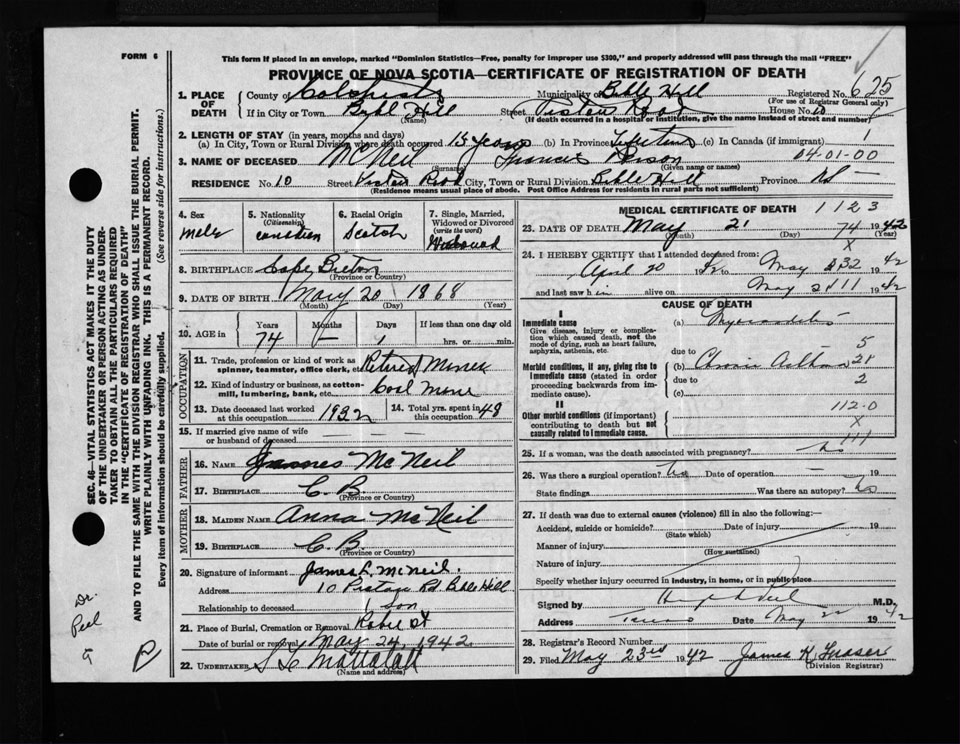 FORM 6
This form if placed in an envelope, marked "Dominion Statistics—Free, penalty for improper use $300," and properly addressed will pass through the mail "FREE"
PROVINCE OF NOVA SCOTIA—CERTIFICATE OF REGISTRATION OF DEATH
1. PLACE OF DEATH County of Colchester Municipality of Bible Hill Registered No. 625
(For use of Registrar General only)
If in City or Town Bible Hill Street Road House No. 10
(Name) (If death occurred in a hospital or institution, give the name instead of street and number)
2. LENGTH OF STAY (in years, months and days)
(a) In City, Town or Rural Division where death occurred 15 years (b) In Province Lifetime (c) In Canada (if immigrant) 1
3. NAME OF DECEASED McNeil Francis 04-01-00
(Surname) (Given name or names)
RESIDENCE No. 10 Street Road City, Town or Rural Division Bible Hill Province NS
(Residence means usual place of abode. Post Office Address for residents in rural parts not sufficient)
4. Sex Male
5. Nationality (Citizenship) Canadian
6. Racial Origin Scotch
7. Single, Married, Widowed or Divorced (write the word) Widowed
8. BIRTHPLACE Cape Breton
(Province or Country)
9. DATE OF BIRTH May 20 1868
(Month) (Day) (Year)
10. AGE in Years 74 Months — Days 1 If less than one day old hrs. or min.
OCCUPATION
11. Trade, profession or kind of work as spinner, teamster, office clerk, etc. Retired Miner
12. Kind of industry or business, as cotton-mill, lumbering, bank, etc. Coal Mine
13. Date deceased last worked at this occupation 1932
14. Total yrs. spent in this occupation 48
15. If married give name of wife or husband of deceased — — —
FATHER
16. NAME James McNeil
17. BIRTHPLACE C. B.
(Province or Country)
MOTHER
18. MAIDEN NAME Anna McNeil
19. BIRTHPLACE C. B.
(Province or Country)
20. Signature of informant James L. McNeil.
Address 10 Rd. Bible Hill
Relationship to deceased son
21. Place of Burial, Cremation or Removal
Date of burial or removal May 24, 1942
22. UNDERTAKER
(Name and address)
MEDICAL CERTIFICATE OF DEATH 1 1 2 3
23. DATE OF DEATH May 21 74 1942
(Month) (Day) (Year)
X
24. I HEREBY CERTIFY that I attended deceased from:
April 20 1942 to May 1942
and last saw him alive on May 21 1942
CAUSE OF DEATH
I
Immediate cause (a) Myocarditis
Give disease, injury or complication which caused death, not the mode of dying, such as heart failure, asphyxia, asthenia, etc.
5
due to
Morbid conditions, if any, giving rise to immediate cause (stated in order proceeding backwards from immediate cause). (b) Chronic Asthma 21
due to 2
(c)
II
Other morbid conditions (if important) contributing to death but not causally related to immediate cause.
112.0
X
111
25. If a woman, was the death associated with pregnancy? no
26. Was there a surgical operation? no Date of operation — 19
State findings Was there an autopsy? no
27. If death was due to external causes (violence) fill in also the following:—
Accident, suicide or homicide? Date of injury 19
(State which)
Manner of injury
(How sustained)
Nature of injury
Specify whether injury occurred in industry, in home, or in public place
Signed by M.D.
Address Truro Date May 22 1942
28. Registrar's Record Number
29. Filed May 23rd 1942 James K. Fraser
(Division Registrar)
SEC. 46—VITAL STATISTICS ACT MAKES IT THE DUTY
OF THE UNDERTAKER OR PERSON ACTING AS UNDERTAKER
TO OBTAIN ALL THE PARTICULARS REQUIRED
IN THE "CERTIFICATE OF REGISTRATION OF DEATH"
AND TO FILE THE SAME WITH THE DIVISION REGISTRAR WHO SHALL ISSUE THE BURIAL PERMIT.
WRITE PLAINLY WITH UNFADING INK. THIS IS A PERMANENT RECORD.
Every item of information should be carefully supplied. (See reverse side for instructions.)
Dr.
Peel